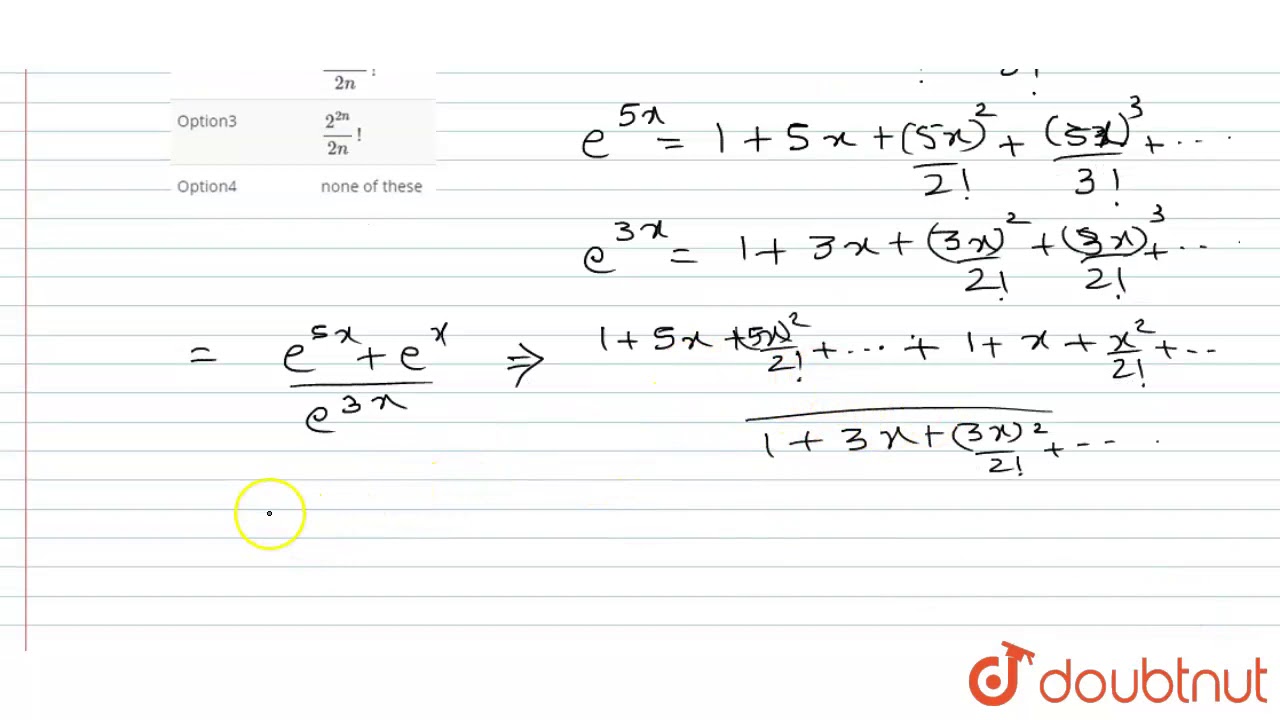 2n !
3!
Option3 2^{2n}/2n !
Option4 none of these
e^{5x} = 1 + 5x + (5x)^2/2! + (5x)^3/3! + ...
e^{3x} = 1 + 3x + (3x)^2/2! + (3x)^3/2! + ...
= (e^{5x} + e^x)/e^{3x} ⇒ (1 + 5x + (5x)^2/2! + ... + 1 + x + x^2/2! + ...)/(1 + 3x + (3x)^2/2! + ...)
doubtnut